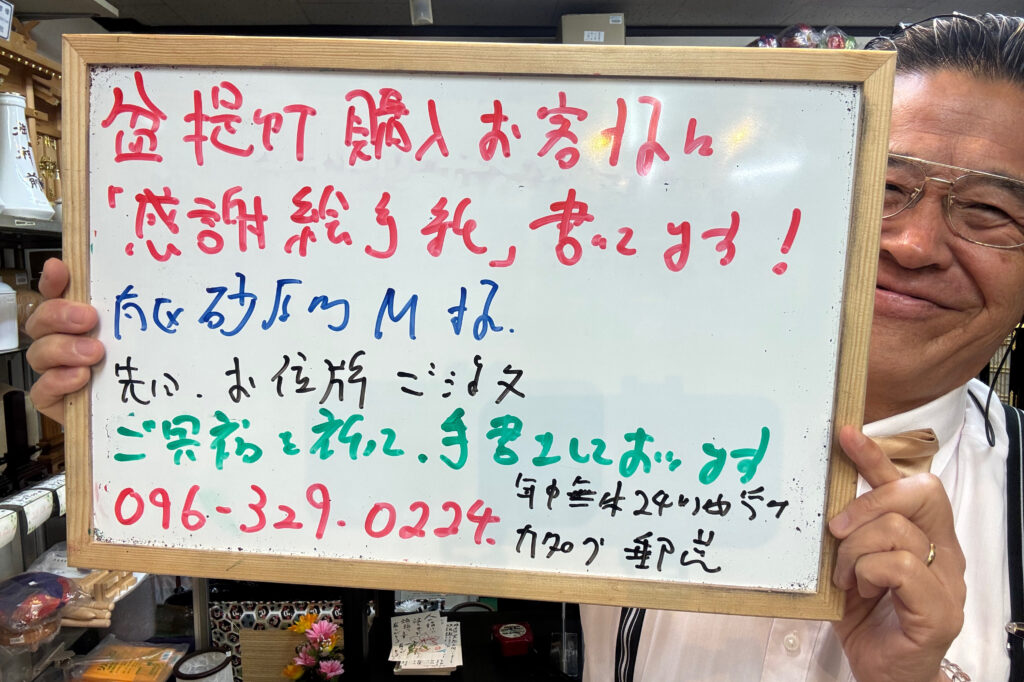 盆提灯 購入お客様に
「感謝絵手紙」書いてます!
砂原町 M様.
先日.お位牌ご注文
ご冥福を祈って.手書きしております
096-329-0224
年中無休24
カタログ 郵送